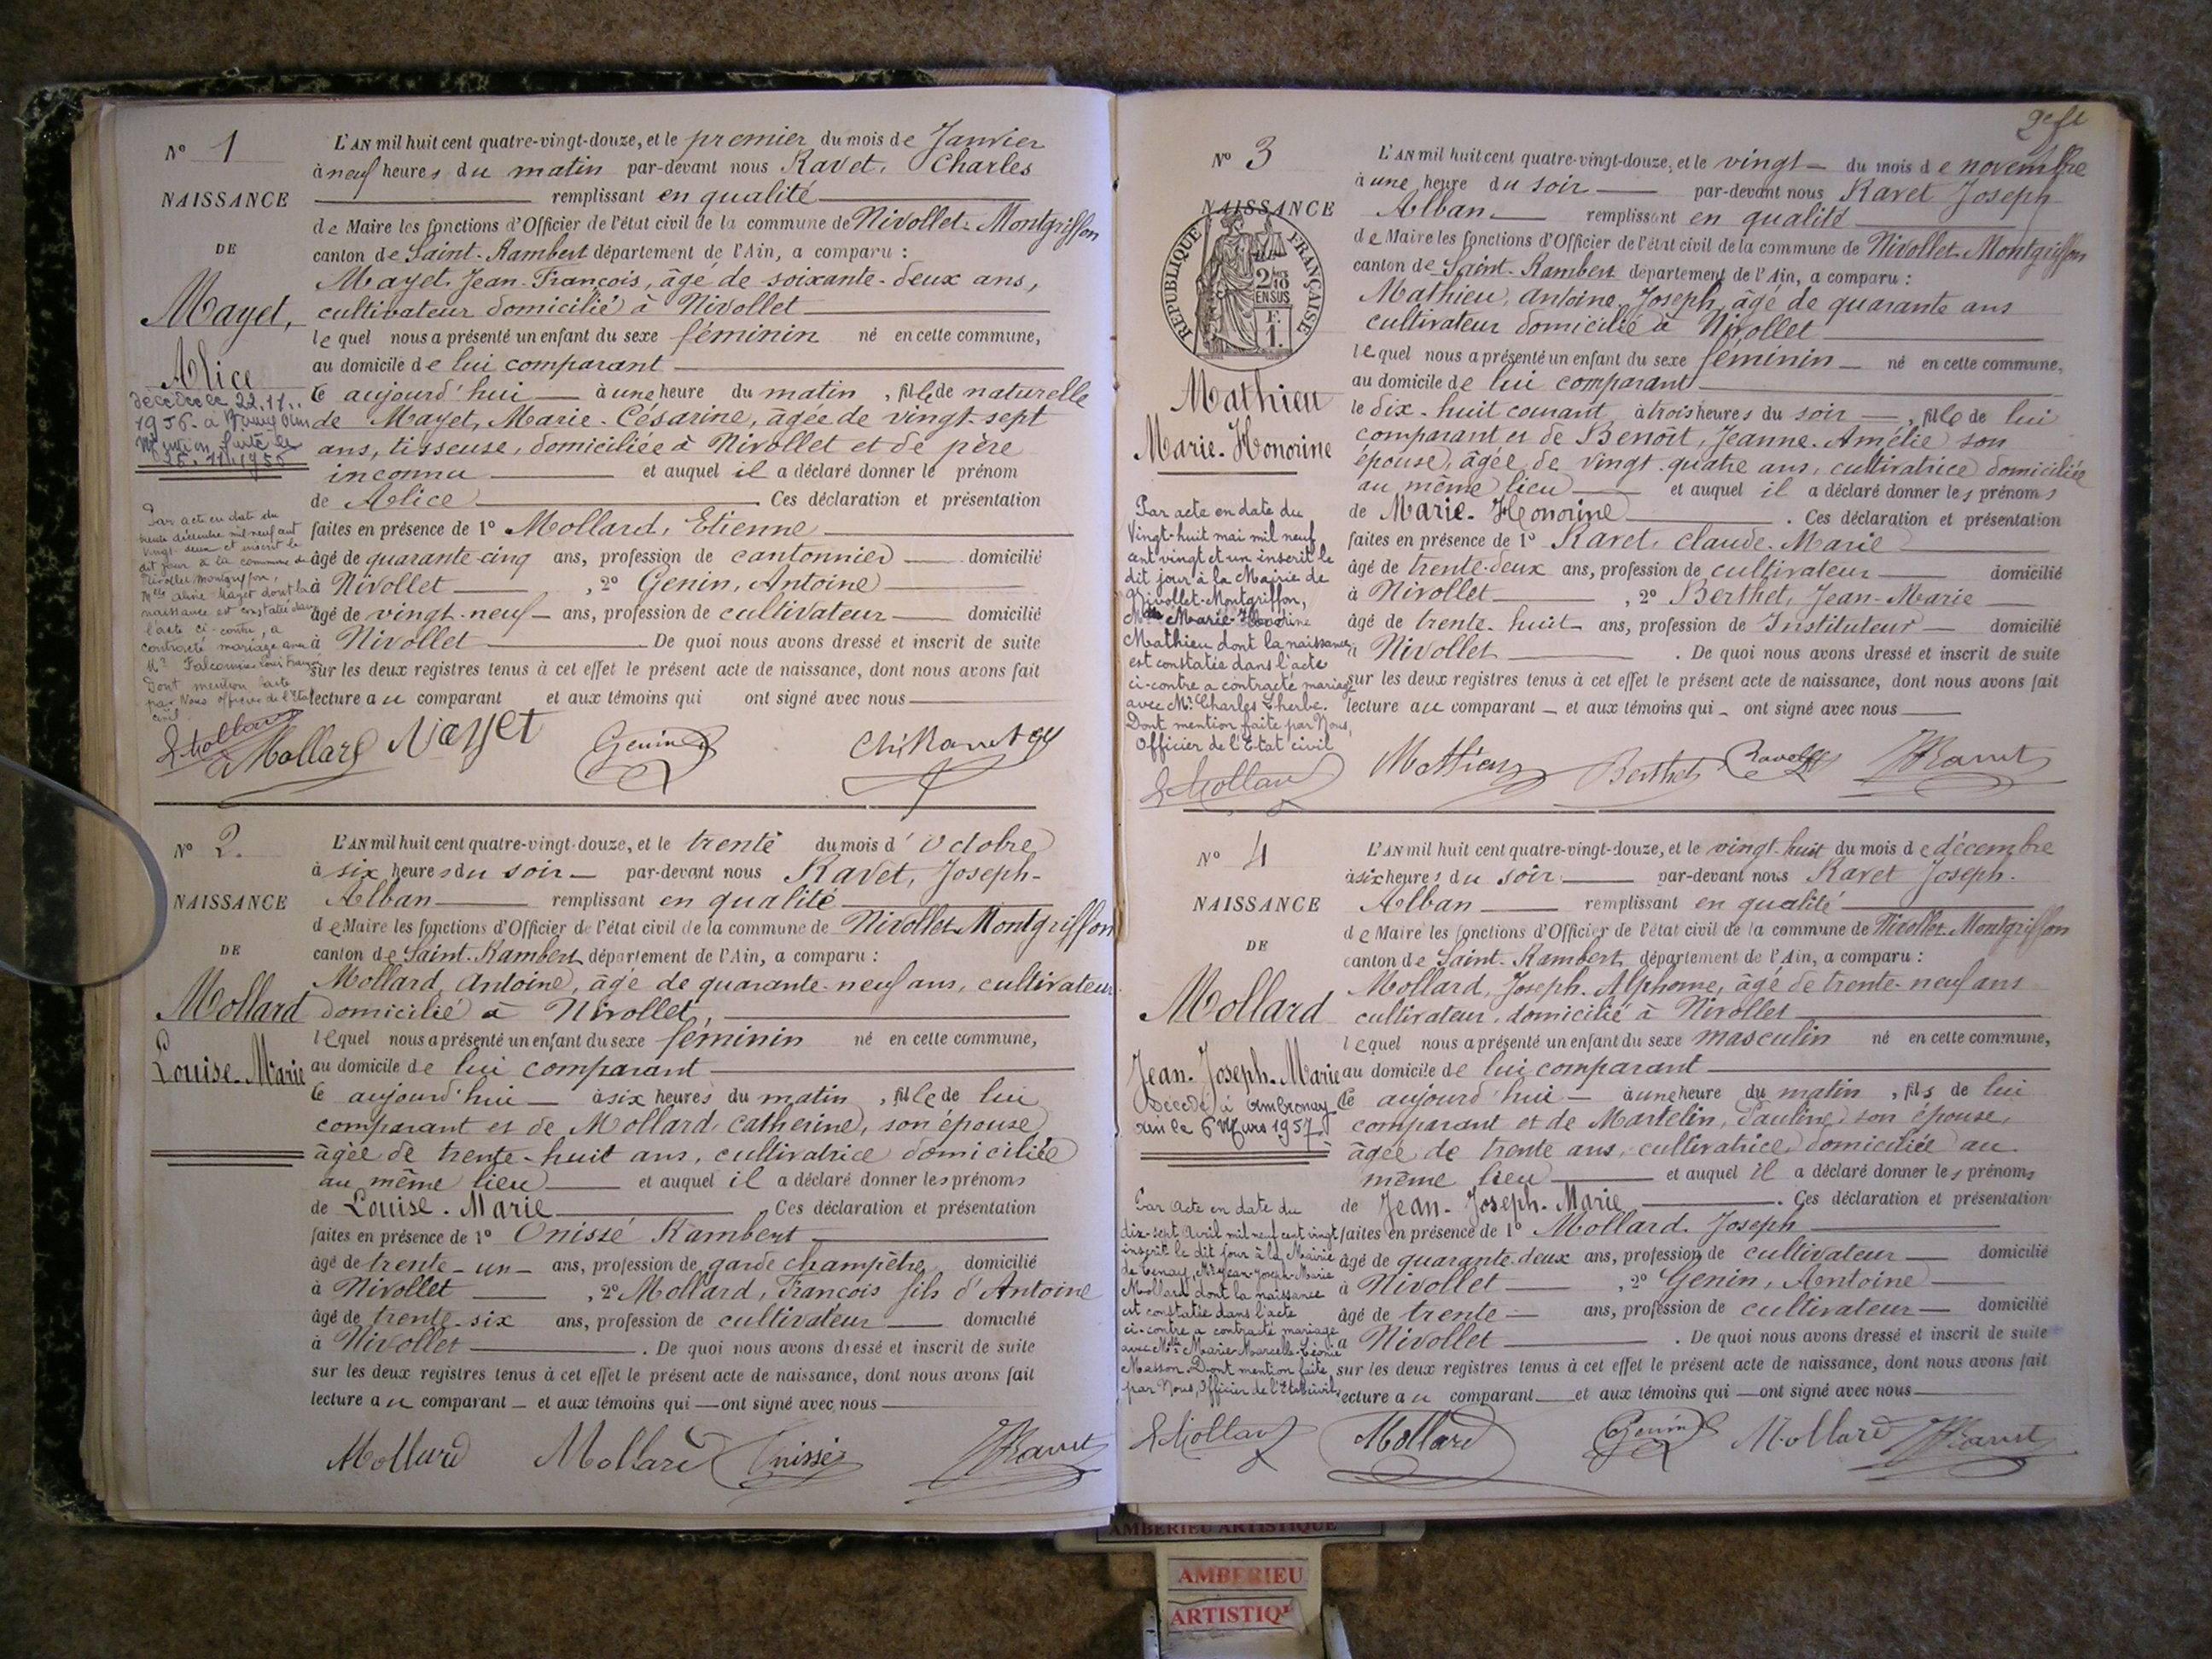 N° 1
NAISSANCE
DE
Mayet,
Alice
décédée le 22.11.
mention faite le
Par acte en date du
trente décembre mil neuf cent
vingt-deux et inscrit le
dit jour à la commune de
Nivollet Montgriffon,
Melle Alice Mayet dont la
naissance est constatée dans
l'acte ci-contre, a
contracté mariage avec
Mr Falconnier Louis François
Dont mention faite
par Nous officier de l'Etat
civil
L'AN mil huit cent quatre-vingt-douze, et le premier du mois de Janvier
à neuf heures du matin par-devant nous Ravet, Charles
remplissant en qualité
de Maire les fonctions d'Officier de l'état civil de la commune de Nivollet-Montgriffon
canton de Saint-Rambert département de l'Ain, a comparu :
Mayet, Jean-François, âgé de soixante-deux ans,
cultivateur domicilié à Nivollet
lequel nous a présenté un enfant du sexe féminin né en cette commune,
au domicile de lui comparant
le aujourd'hui à une heure du matin, fille de naturelle
de Mayet, Marie-Césarine, âgée de vingt-sept
ans, tisseuse, domiciliée à Nivollet et de père
inconnu et auquel il a déclaré donner le prénom
de Alice Ces déclaration et présentation
faites en présence de 1° Mollard, Etienne
âgé de quarante-cinq ans, profession de cantonnier domicilié
à Nivollet, 2° Genin, Antoine
âgé de vingt-neuf ans, profession de cultivateur domicilié
à Nivollet De quoi nous avons dressé et inscrit de suite
sur les deux registres tenus à cet effet le présent acte de naissance, dont nous avons fait
lecture au comparant et aux témoins qui ont signé avec nous
Mollard Mayet Genin Ch Ravet
N° 2.
NAISSANCE
DE
Mollard
Louise-Marie
L'AN mil huit cent quatre-vingt-douze, et le trente du mois d'Octobre
à six heures du soir par-devant nous Ravet, Joseph-
Alban remplissant en qualité
de Maire les fonctions d'Officier de l'état civil de la commune de Nivollet-Montgriffon
canton de Saint-Rambert département de l'Ain, a comparu :
Mollard, Antoine, âgé de quarante-neuf ans, cultivateur
domicilié à Nivollet,
lequel nous a présenté un enfant du sexe féminin né en cette commune,
au domicile de lui comparant
le aujourd'hui à six heures du matin, fille de lui
comparant et de Mollard, Catherine, son épouse
âgée de trente-huit ans, cultivatrice domiciliée
au même lieu et auquel il a déclaré donner les prénoms
de Louise-Marie Ces déclaration et présentation
faites en présence de 1° Onissé Rambert
âgé de trente-un ans, profession de garde champêtre domicilié
à Nivollet, 2° Mollard, François fils d'Antoine
âgé de trente-six ans, profession de cultivateur domicilié
à Nivollet. De quoi nous avons dressé et inscrit de suite
sur les deux registres tenus à cet effet le présent acte de naissance, dont nous avons fait
lecture au comparant et aux témoins qui ont signé avec nous
Mollard Mollard Onissé Ravet
N° 3
NAISSANCE
REPUBLIQUE FRANÇAISE
2/10
EN SUS
F.
1.
Mathieu
Marie-Honorine
Par acte en date du
Vingt-huit mai mil neuf
cent vingt et un inscrit le
dit jour à la Mairie de
Nivollet-Montgriffon,
Melle Marie-Honorine
Mathieu dont la naissance
est constatée dans l'acte
ci-contre a contracté mariage
avec Mr Charles Lherbe.
Dont mention faite par Nous,
Officier de l'Etat civil
L'AN mil huit cent quatre-vingt-douze, et le vingt du mois de novembre
à une heure du soir par-devant nous Ravet Joseph
Alban remplissant en qualité
de Maire les fonctions d'Officier de l'état civil de la commune de Nivollet-Montgriffon
canton de Saint-Rambert département de l'Ain, a comparu :
Mathieu, Antoine, Joseph, âgé de quarante ans
cultivateur domicilié à Nivollet
lequel nous a présenté un enfant du sexe féminin né en cette commune,
au domicile de lui comparant
le dix-huit courant, à trois heures du soir, fille de lui
comparant et de Benoît, Jeanne-Amélie son
épouse, âgée de vingt-quatre ans, cultivatrice domiciliée
au même lieu et auquel il a déclaré donner les prénoms
de Marie-Honorine. Ces déclaration et présentation
faites en présence de 1° Ravet, Claude-Marie
âgé de trente-deux ans, profession de cultivateur domicilié
à Nivollet, 2° Berthet, Jean-Marie
âgé de trente-huit ans, profession de Instituteur domicilié
à Nivollet. De quoi nous avons dressé et inscrit de suite
sur les deux registres tenus à cet effet le présent acte de naissance, dont nous avons fait
lecture au comparant et aux témoins qui ont signé avec nous
Mollard Mathieu Berthet Ravet Ravet
N° 4
NAISSANCE
DE
Mollard
Jean-Joseph-Marie
Décédé à Ambronay
Ain le 6 Mars 1957
Par acte en date du
dix-sept Avril mil neuf cent vingt
inscrit le dit jour à la Mairie
de Tenay, Mr Jean-Joseph-Marie
Mollard dont la naissance
est constatée dans l'acte
ci-contre a contracté mariage
avec Melle Marie Marcelle Léonie
Masson. Dont mention faite
par Nous, Officier de l'Etat civil
L'AN mil huit cent quatre-vingt-douze, et le vingt-huit du mois de décembre
à six heures du soir par-devant nous Ravet Joseph-
Alban remplissant en qualité
de Maire les fonctions d'Officier de l'état civil de la commune de Nivollet-Montgriffon
canton de Saint-Rambert département de l'Ain, a comparu :
Mollard, Joseph-Alphonse, âgé de trente-neuf ans
cultivateur, domicilié à Nivollet
lequel nous a présenté un enfant du sexe masculin né en cette commune,
au domicile de lui comparant
le aujourd'hui à une heure du matin, fils de lui
comparant et de Martelin, Pauline, son épouse,
âgée de trente ans, cultivatrice, domiciliée au
même lieu et auquel il a déclaré donner les prénoms
de Jean-Joseph-Marie. Ces déclaration et présentation
faites en présence de 1° Mollard Joseph
âgé de quarante-deux ans, profession de cultivateur domicilié
à Nivollet, 2° Genin, Antoine
âgé de trente ans, profession de cultivateur domicilié
à Nivollet. De quoi nous avons dressé et inscrit de suite
sur les deux registres tenus à cet effet le présent acte de naissance, dont nous avons fait
lecture au comparant et aux témoins qui ont signé avec nous
Mollard Mollard Genin Mollard Ravet
AMBERIEU ARTISTIQUE
AMBERIEU
ARTISTIQ